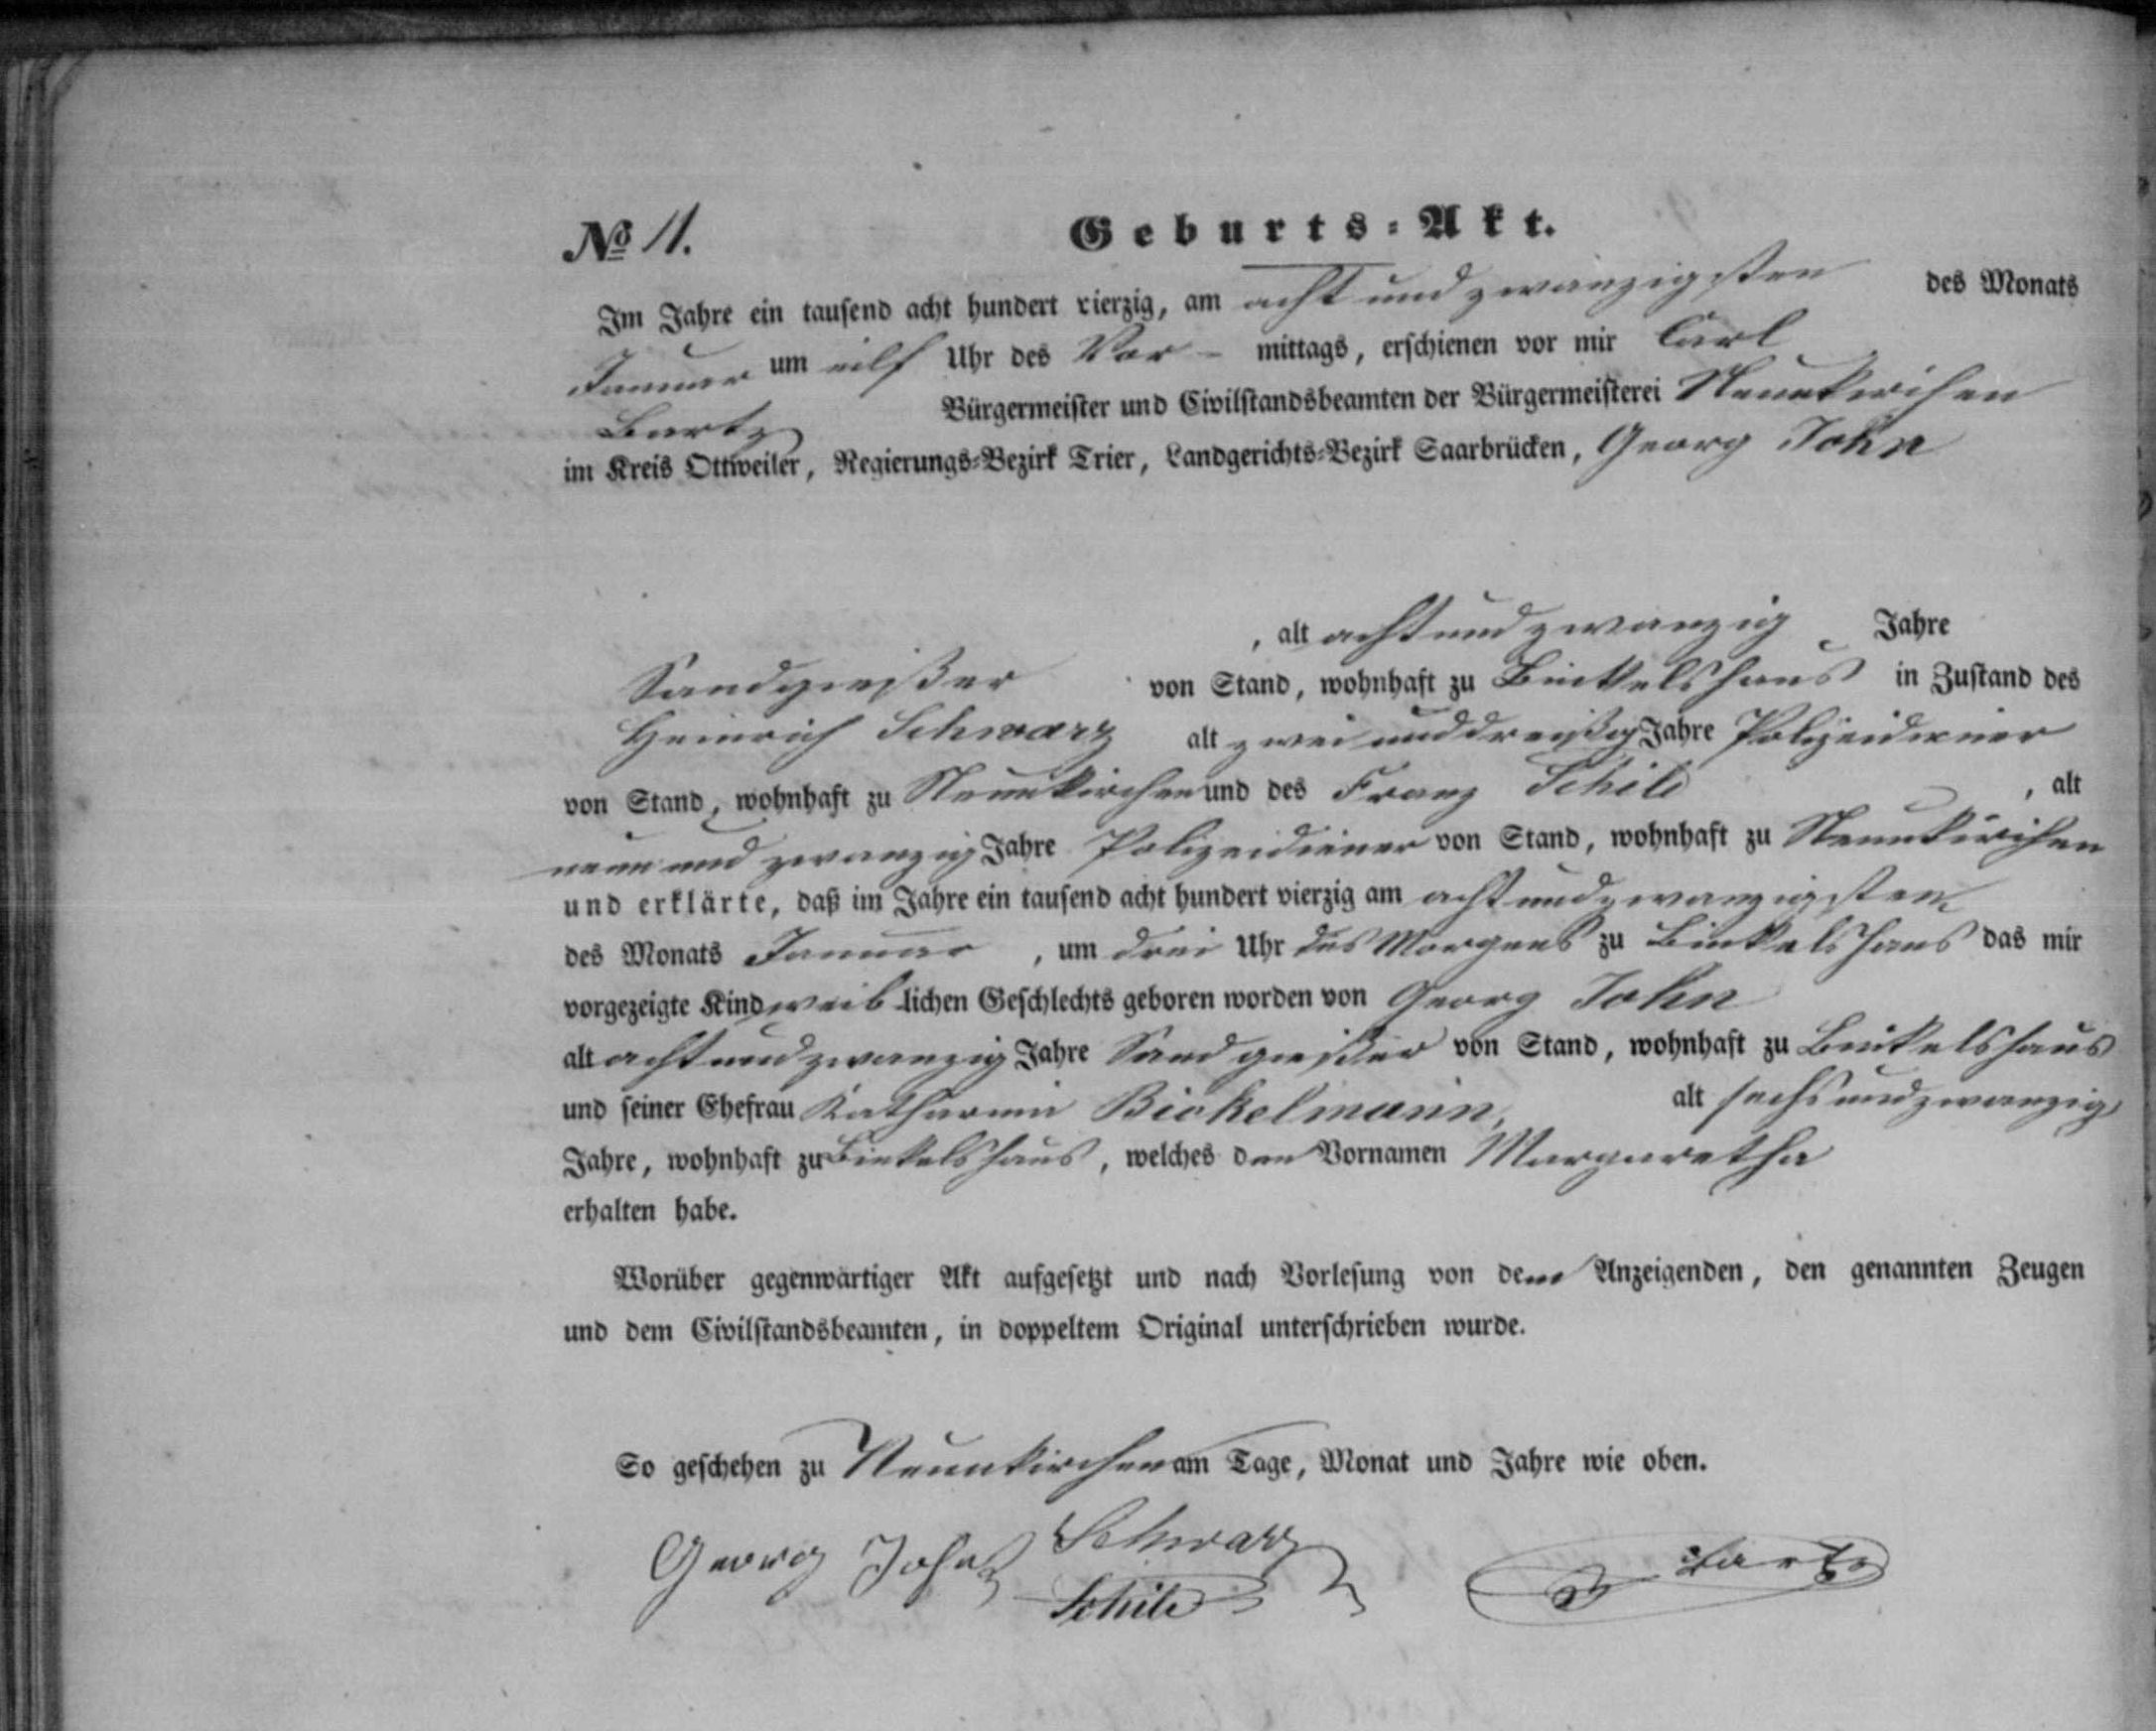 No 11. Geburts-Akt.
Im Jahre ein tausend acht hundert vierzig, am acht und zwanzigsten des Monats
Januar um eilf Uhr des Vor- mittags, erschienen vor mir Carl
Bartz Bürgermeister und Civilstandsbeamten der Bürgermeisterei Neunkirchen
im Kreis Ottweiler, Regierungs-Bezirk Trier, Landgerichts-Bezirk Saarbrücken, Georg John
, alt achtundzwanzig Jahre
Sandgießer von Stand, wohnhaft zu Binkelshaus in Zustand des
Heinrich Schwarz alt zweiunddreißig Jahre Polizeidiener
von Stand, wohnhaft zu Neunkirchen und des Franz Schild , alt
neun und zwanzig Jahre Polizeidiener von Stand, wohnhaft zu Neunkirchen
und erklärte, daß im Jahre ein tausend acht hundert vierzig am achtundzwanzigsten
des Monats Januar , um drei Uhr des Morgens zu Binkelshaus das mir
vorgezeigte Kind weib-lichen Geschlechts geboren worden von Georg John
alt achtundzwanzig Jahre Sandgießer von Stand, wohnhaft zu Binkelshaus
und seiner Ehefrau Katharina Bickelmann, alt sechsundzwanzig
Jahre, wohnhaft zu Binkelshaus, welches den Vornamen Margaretha
erhalten habe.
Worüber gegenwärtiger Akt aufgesetzt und nach Vorlesung von dem Anzeigenden, den genannten Zeugen
und dem Civilstandsbeamten, in doppeltem Original unterschrieben wurde.
So geschehen zu Neunkirchen am Tage, Monat und Jahre wie oben.
Georg John Schwarz Bartz
Schild